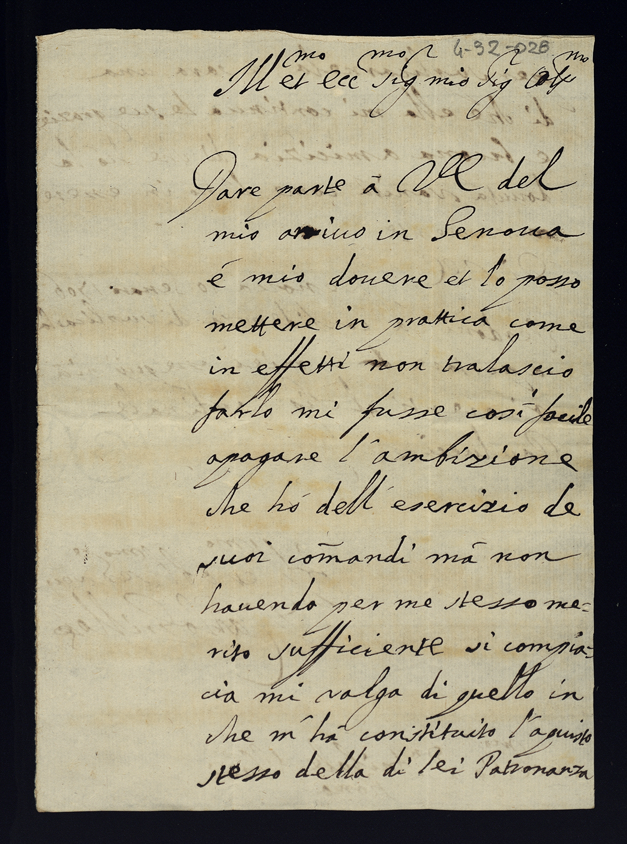 4-32-028
Ill mo et ecc mo Sig r mio Sig r
Dare parte à VE del
mio arriuo in Genoua
é mio douere et lo posso
mettere in prattica come
in effetti non tralascio
farlo mi fusse così facile
apagare l'ambizione
che hó dell'esercizio de
suoi com̃andi mà non
hauendo per me stesso me=
rito sufficiente si compia=
cia mi valga di quello in
che m'hà constituito l'aquisto
stesso della di lei Patronanza